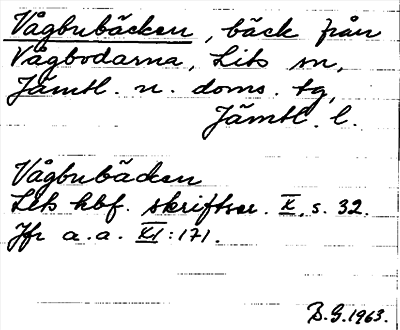 Vågbubäcken, bäck från
Vågbodarna, Lits sn,
Jämtl. n. doms. tg,
Jämtl. l.
Vågbubäcken
Lits hbf. skriftser. X, s. 32.
Jfr a.a. XI:171.
B.G. 1963.